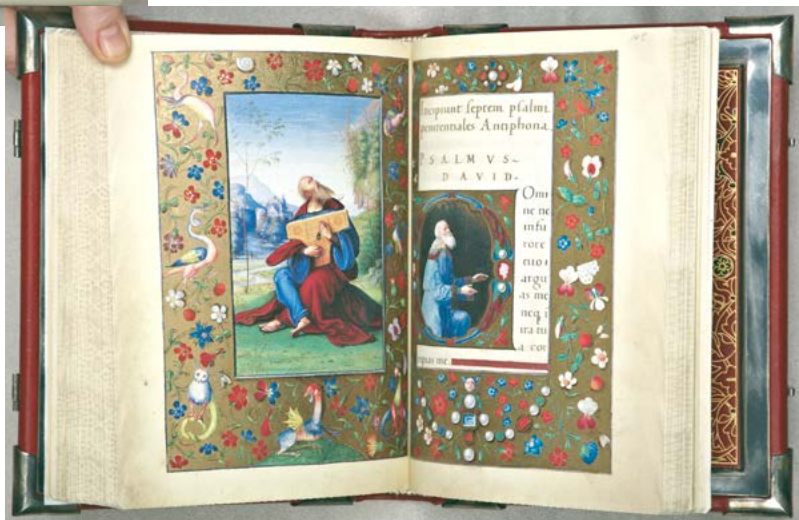 Incipiunt septem psalmi
penitentiales Antiphona
PSALMVS
DAVID
Omi
ne ne
in fu
rore
tuo
argu
as me
neq i
ira tu
a cor
ripias me